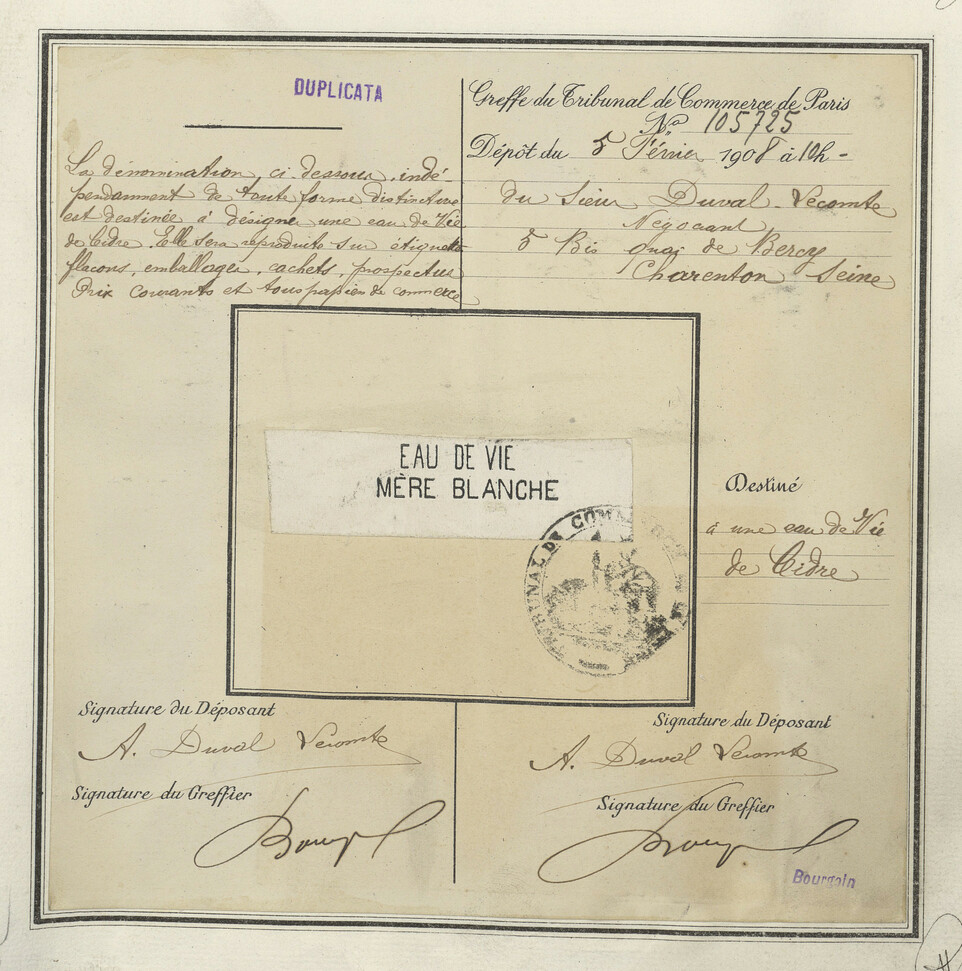 DUPLICATA
La dénomination, ci dessous, indé-
pendamment de toute forme distinctive
est destinée à désigner une eau de Vie
de Cidre. Elle sera reproduite sur étiquettes
flacons, emballages, cachets, prospectus
Prix courants et tous papiers de commerce
Greffe du Tribunal de Commerce de Paris
No. 105725
Dépôt du 5 Février 1908 à 10h -
du Sieur Duval-Lecomte
Négociant
5 Bis quai de Bercy
Charenton Seine
EAU DE VIE
MÈRE BLANCHE
TRIBUNAL DE COMM
Destiné
à une eau de Vie
de Cidre
Signature du Déposant
A. Duval Lecomte
Signature du Greffier
Signature du Déposant
A. Duval Lecomte
Signature du Greffier
Bourgoin